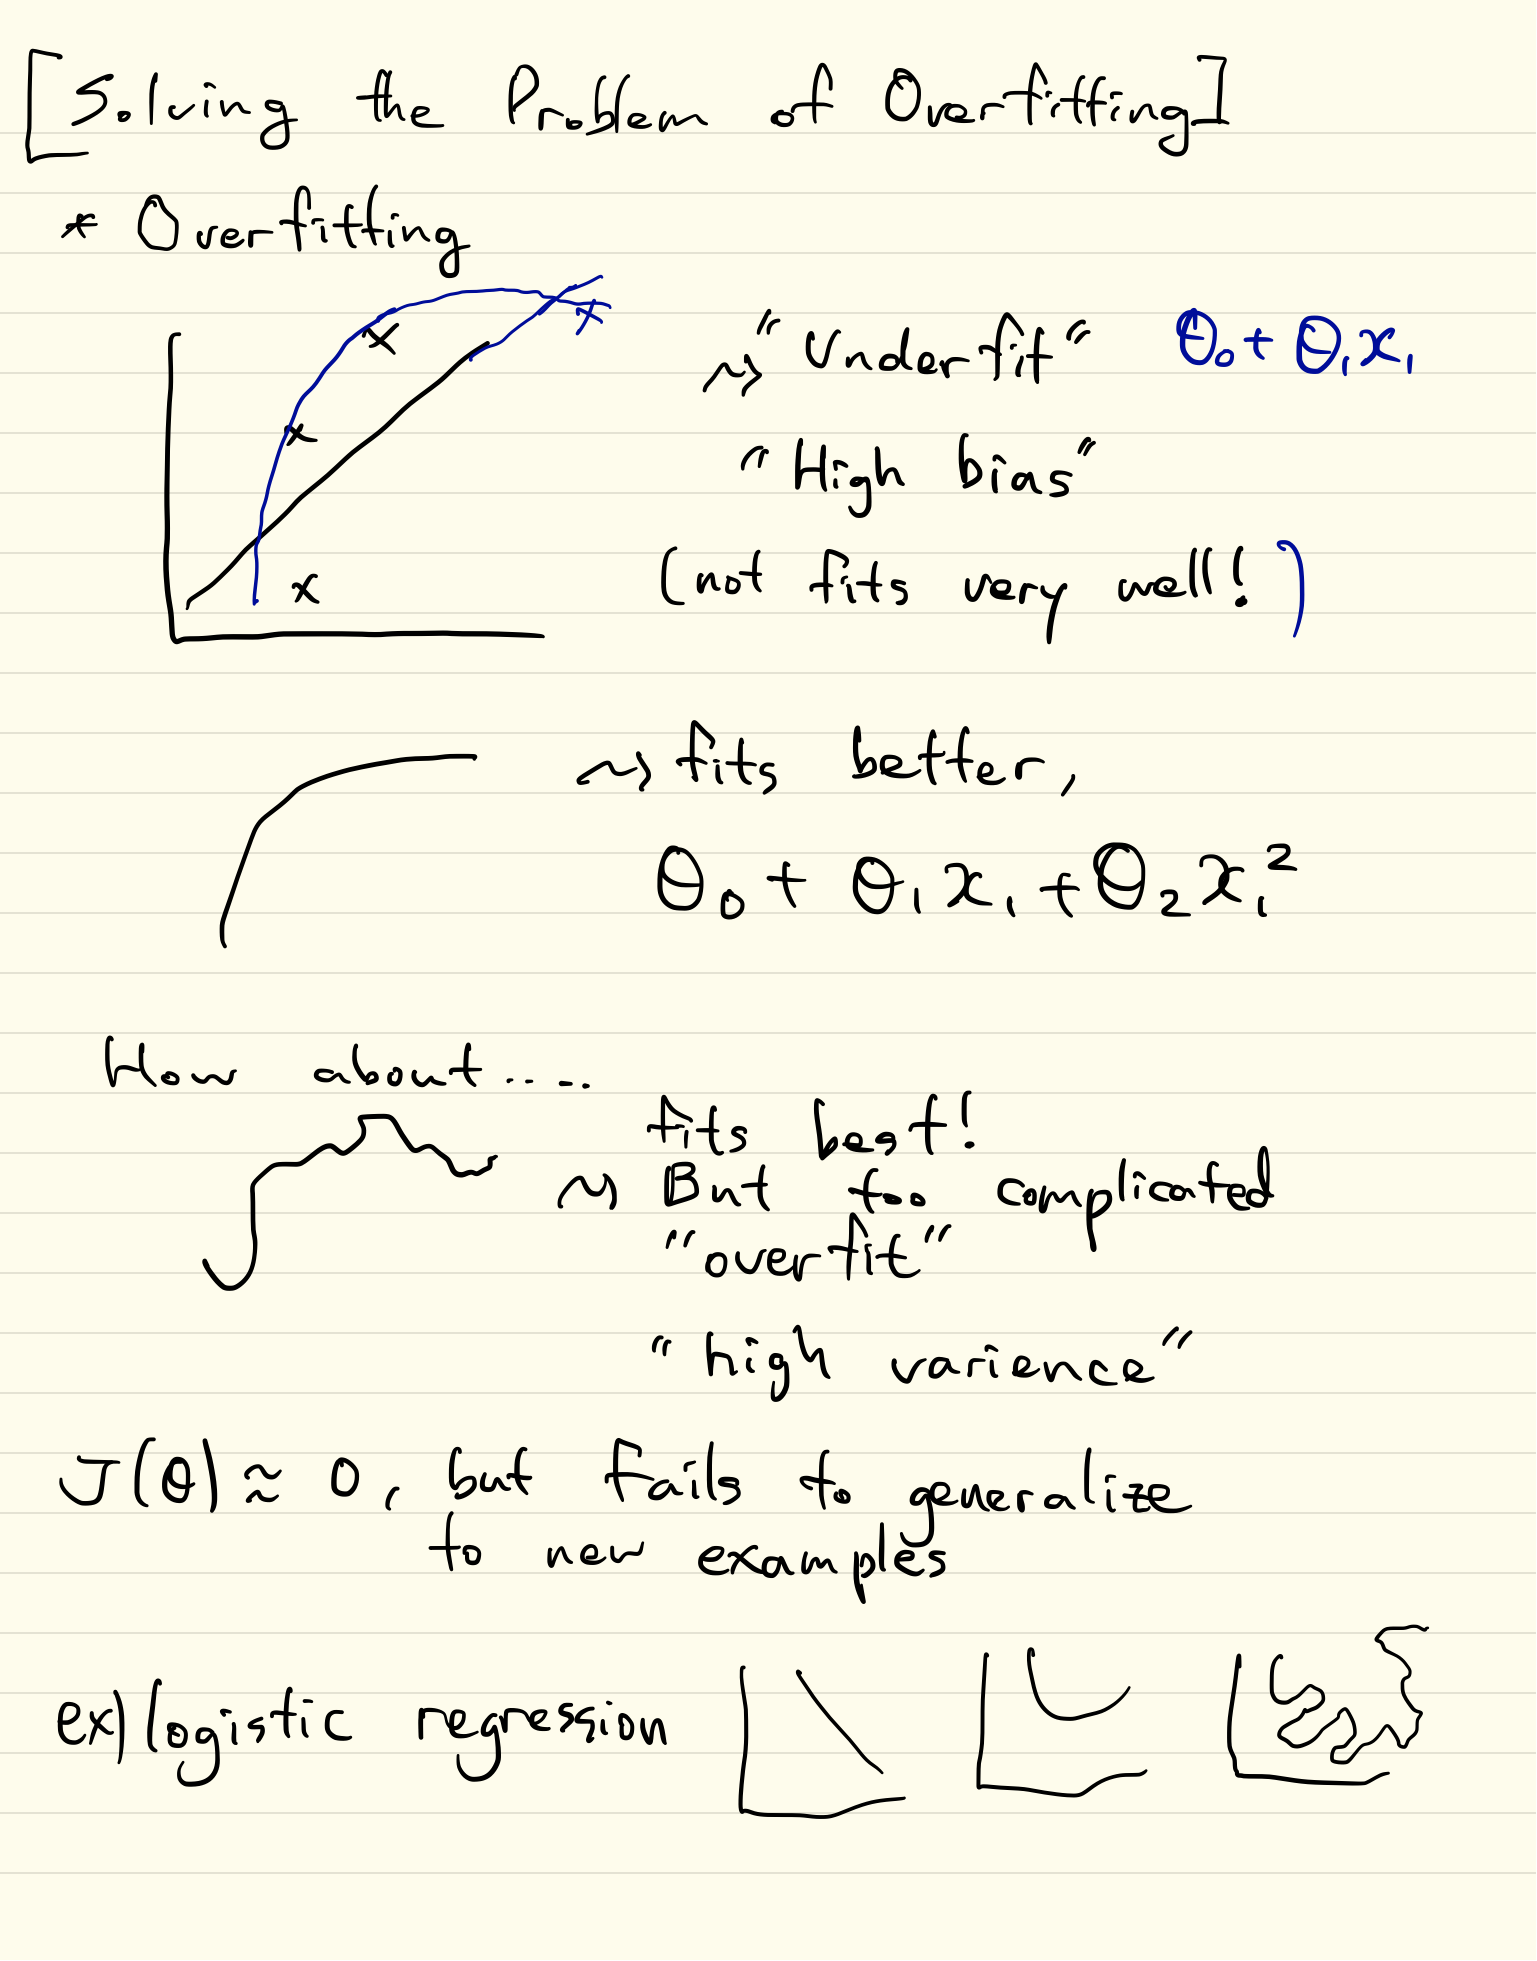 [Solving the Problem of Overfitting]
* Overfitting
x x x x
~> "Underfit" θ₀ + θ₁x₁
"High bias"
(not fits very well!)
~> fits better,
θ₀ + θ₁x₁ + θ₂x₁²
How about.....
fits best!
~> But too complicated
"overfit"
"high varience"
J(θ) ≈ 0, but fails to generalize
to new examples
ex) logistic regression